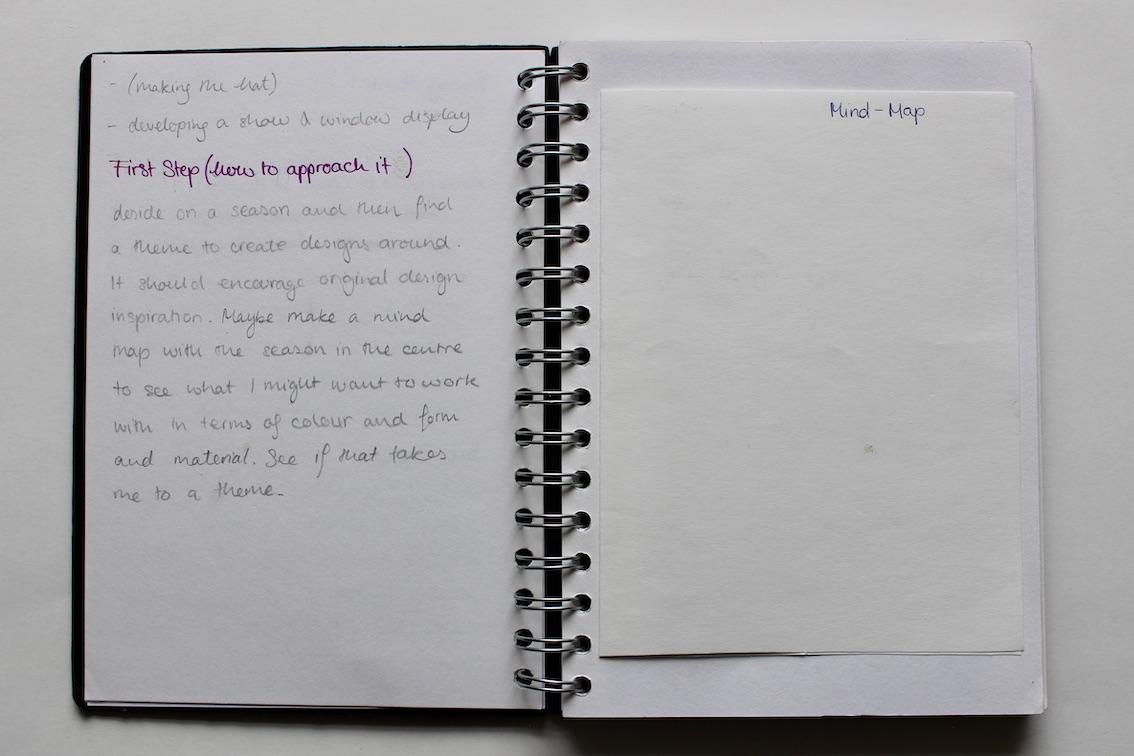 - (making the hat)
- developing a show & window display
First Step (how to approach it)
deside on a season and then find
a theme to create designs around.
It should encourage original design
inspiration. Maybe make a mind
map with the season in the centre
to see what I might want to work
with in terms of colour and form
and material. See if that takes
me to a theme.
Mind-Map